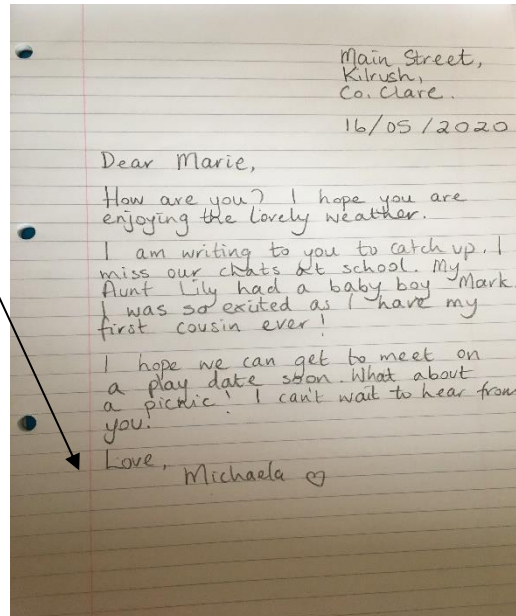 Main Street,
Kilrush,
Co. Clare.
16/05/2020
Dear Marie,
How are you? I hope you are
enjoying the lovely weather.
I am writing to you to catch up. I
miss our chats at school. My
Aunt Lily had a baby boy Mark.
I was so exited as I have my
first cousin ever!
I hope we can get to meet on
a play date soon. What about
a picnic! I can't wait to hear from
you!
Love,
Michaela ♡